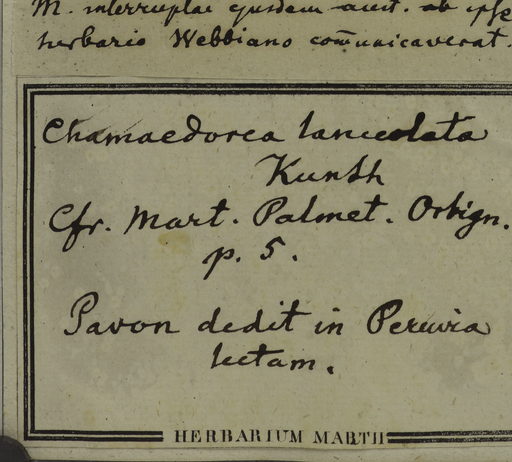 M. interruptae ejusdem auct. ab ipse
herbario Webbiano com̄unicaverat.
Chamaedorea lanceolata
Kunth
Cfr. Mart. Palmet. Orbign.
p. 5.
Pavon dedit in Peruvia
lectam.
HERBARIUM MARTII